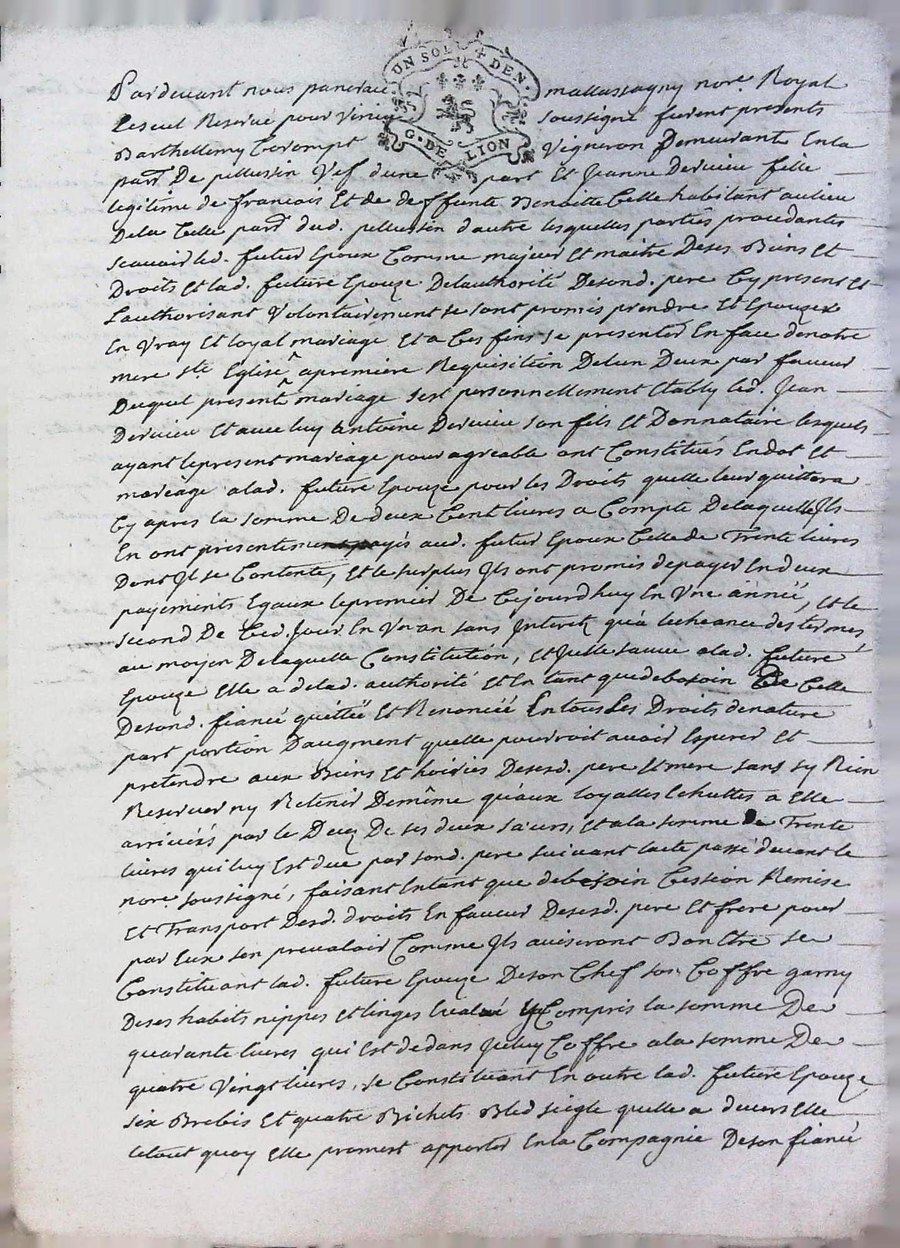 UN SOL 4 DEN.
G. DE LION
Pardevant nous pancrace mallassagny nore. Royal
Reservé pour Virieu soussigné furent presents
Barthellemy Corompt Vigneron Demeurante En la
parr. De pellussin Vef. d'une part Et Jeanne Dervieu fille
legitime de francois Et de deffunte Benoitte Celle habitant au lieu
De la Celle parr. dud. pellussin d'autre lesquelles parties procedantes
scavoir led. futur Epoux Comme majeur et maitre De ses Biens et
Droits et lad. future Epouze De l'authorité De sond. pere Cy present et
l'authorisant Volontairement se sont promis prendre Et Epouzer
En Vray et loyal mariage et a Ces fins se presenter En face de notre
mere Ste. Eglise a premiere Requisition De l'un Deux par faveur
Duquel present mariage s'est personnellement Etably led. Jean
Dervieu et avec luy Antoine Dervieu son fils et Donnataire lesquels
ayant le present mariage pour agreable ont Constitués En dot et
mariage a lad. future Epouze pour les Droits quelle leur quittera
Cy apres la somme De deux Cent livres a Compte De laquelle Ils
En ont presentement payés aud. futur Epoux Celle de Trente livres
Dont Il se Contente, Et le surplus Ils ont promis de payer En deux
payements Egaux le premier De Cejourdhuy En Vne année, et le
second De Ced. Jour En Vn an sans Interetz qu'a l'echeance des termes
au moyen De laquelle Constitution, et Icelle sauve a lad. future
Epouze Elle a de lad. authorité et En tant que de besoin De Celle
De sond. fiancé quittée Et Renoncée En tous Les Droits de nature
part portion D'augment quelle pourroit avoir Esperer Et
pretendre aux Biens et hoiries Desesd. pere Et mere sans sy Rien
Reserver ny Retenir De même qu'aux loyalles Echuttes a Elle
arrivées par le Decez De ses deux sœurs, et a la somme de Trente
livres qui luy Est due par sond. pere suivant l'acte passé devant le
nore. soussigné, faisant En tant que de besoin Cession Remise
Et Transport Desd. droits En faveur Desesd. pere Et frere pour
par Eux s'en prevaloir Comme Ils aviseront Bon Etre se
Constituant lad. future Epouze De son Chef son Coffre garny
De ses habits nippes et linges Evalué y Compris la somme De
quarante livres qui Est dedans Iceluy Coffre a la somme De
quatre Vingt livres, se Constituant En outre lad. future Epouze
six Brebis et quatre Bichets Bled siegle quelle a devers elle
le tout quoy Elle promest apporter En la Compagnie De son fiancé